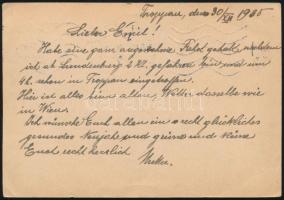 Troppau, den 30/XII 1935
Lieber Emil!
Habe eine ganz angenehme Fahrt gehabt, nachdem
ich ab Lundenburg 4 h. gefahren bin und um
4 h. schon in Troppau eingetroffen.
Hier ist alles beim alten, Wetter dasselbe wie
in Wien.
Ich wünsche Euch allen ein recht glückliches
gesundes Neujahr und grüsse und küsse
Euch recht herzlich